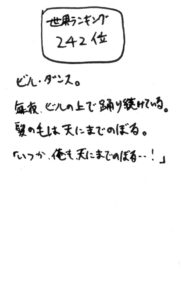 世界ランキング
242位
ビル・ダンス。
毎夜、ビルの上で踊り続けている。
髪の毛は天にまでのぼる。
「いつか、俺も天にまでのぼる‥!」